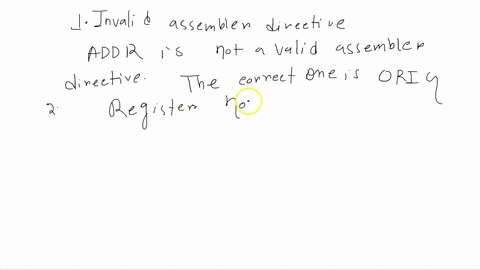 1. Invalid assembler directive
ADDR is not a valid assembler
directive. The correct one is ORIG
2. Register no.